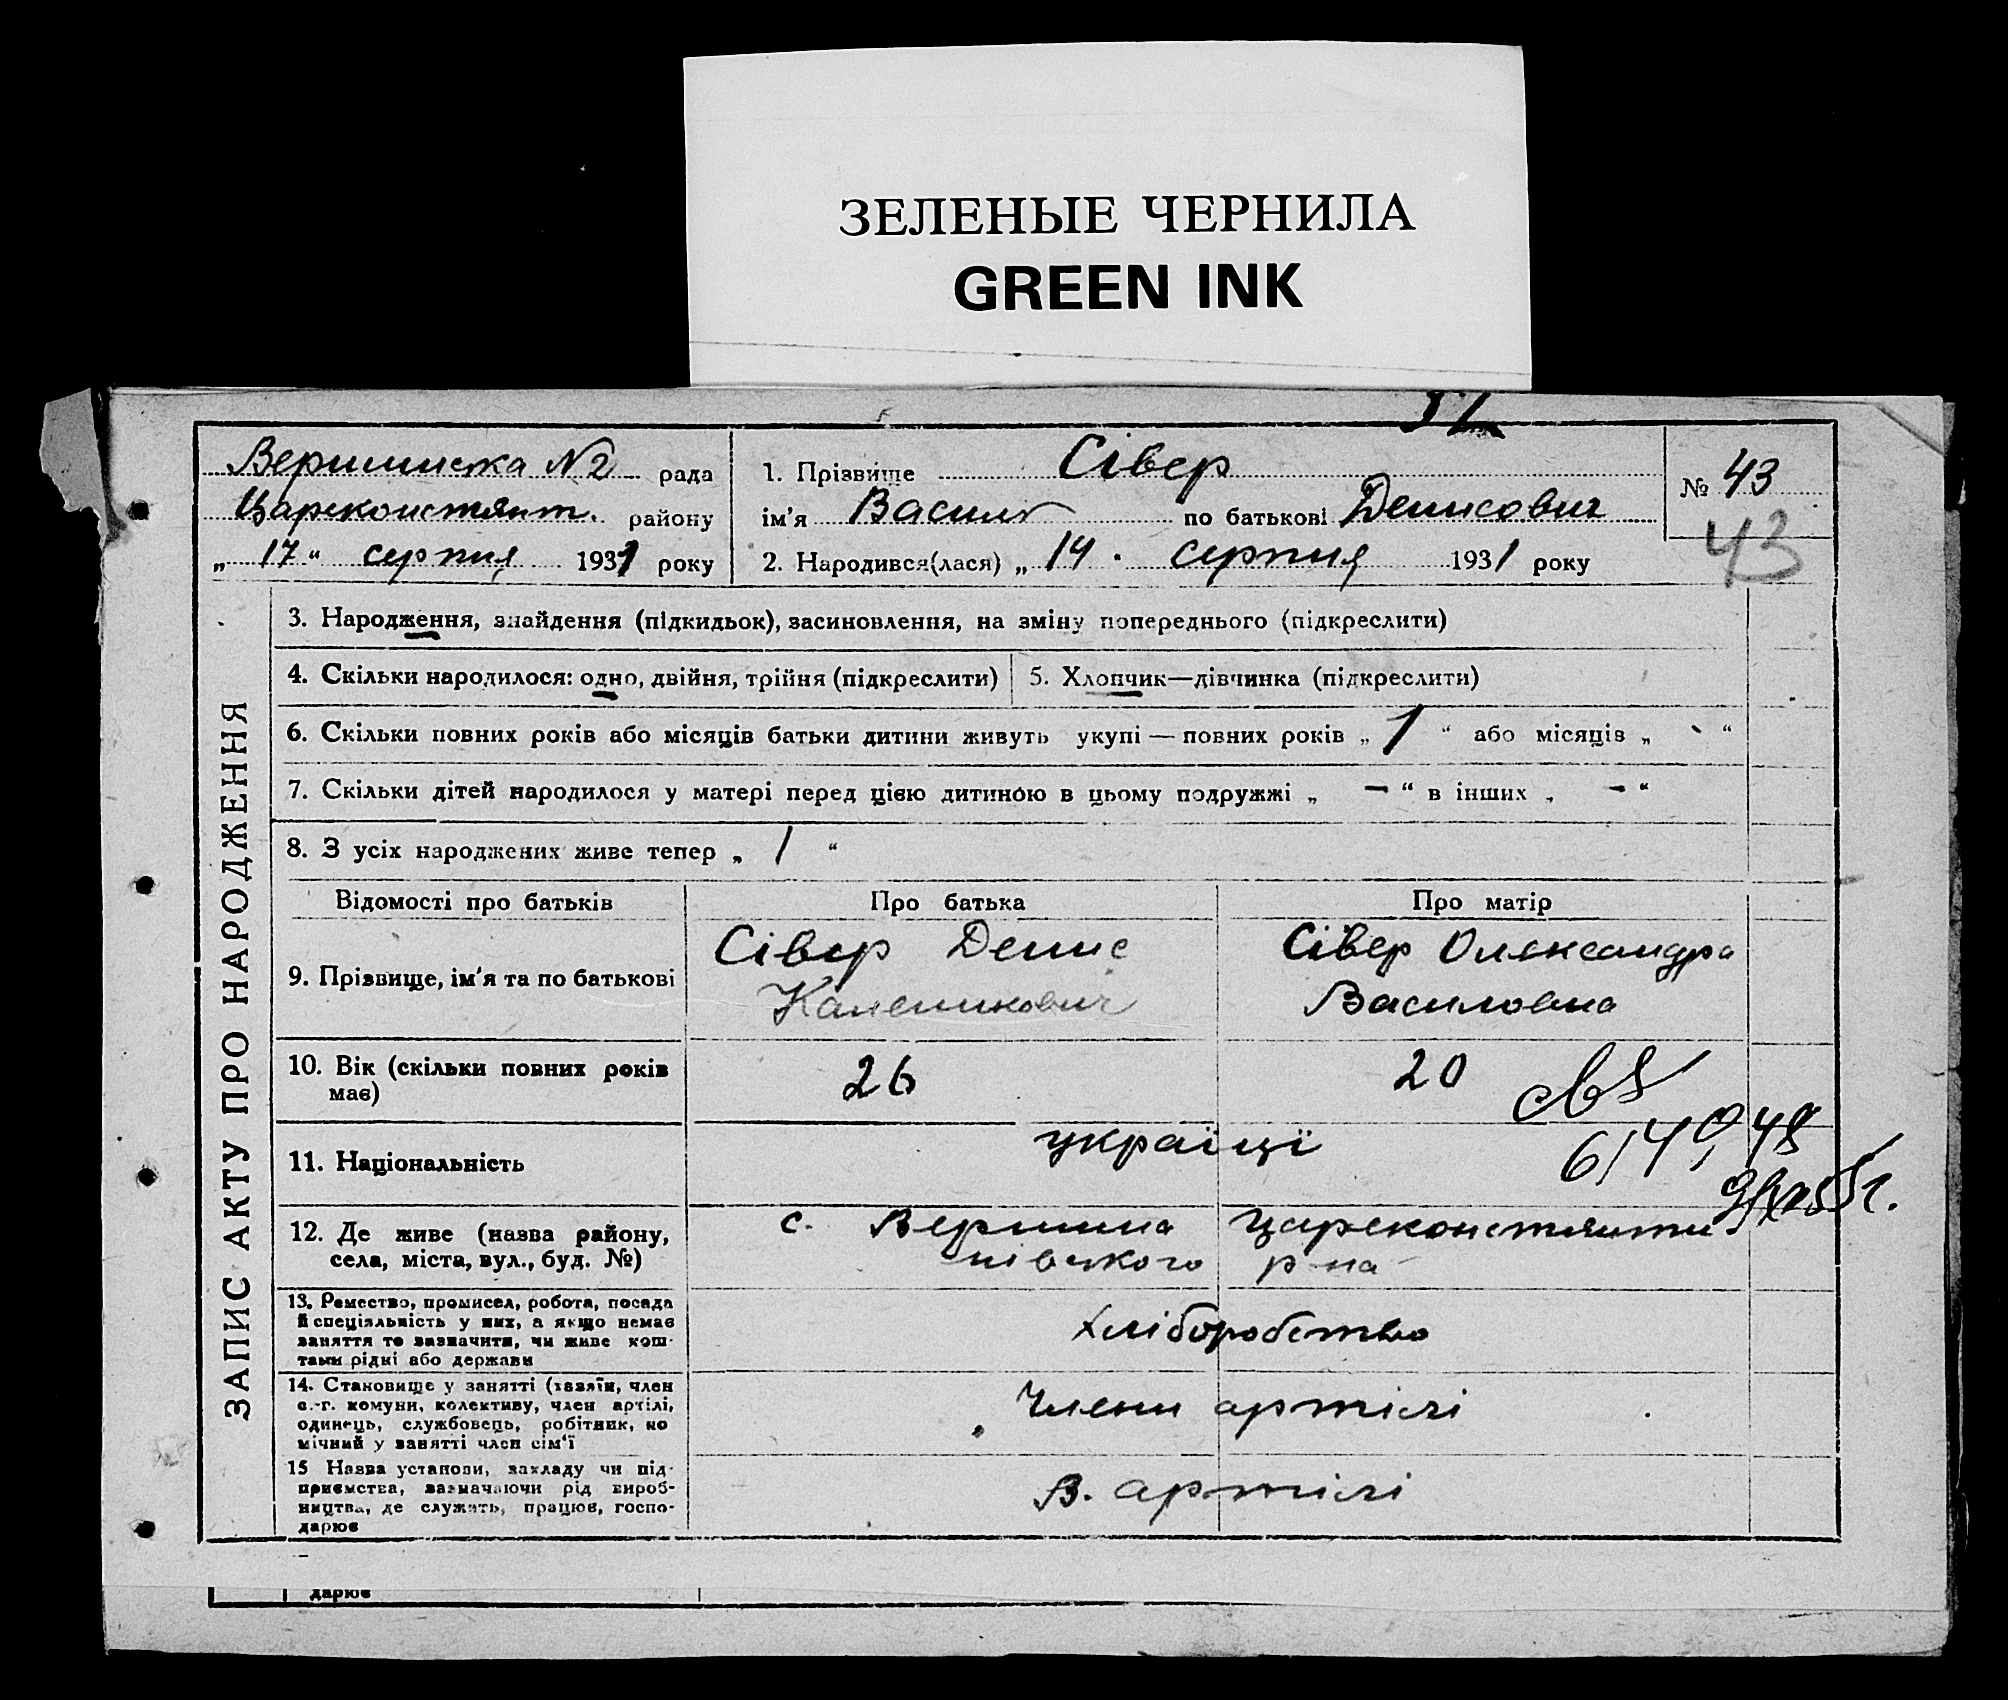 ЗЕЛЕНЫЕ ЧЕРНИЛА
GREEN INK
Вершинська №2 рада
Царекостянт. району
„ 17 “ серпня 1931 року
1. Прізвище Сівер
ім'я Василь по батькові Денисович
2. Народився(лася) „ 14 серпня 1931 року
№ 43
43
ЗАПИС АКТУ ПРО НАРОДЖЕННЯ
3. Народження, знайдення (підкидьок), засиновлення, на зміну попереднього (підкреслити)
4. Скільки народилося: одно, двійня, трійня (підкреслити)
5. Хлопчик—дівчинка (підкреслити)
6. Скільки повних років або місяців батьки дитини живуть укупі — повних років „ 1 “ або місяців „ “
7. Скільки дітей народилося у матері перед цією дитиною в цьому подружжі „ — “ в інших „ — “
8. З усіх народжених живе тепер „ 1 “
Відомості про батьків Про батька Про матір
9. Прізвище, ім'я та по батькові
Сівер Денис
Каленикович
Сівер Олександра
Василовна
10. Вік (скільки повних років
має)
26
20
11. Національність
україці
12. Де живе (назва району,
села, міста, вул., буд. №)
с. Вершина Цареконстянти
нівського р-на
13. Ремество, промисел, робота, посада
й спеціяльність у них, а якщо немає
заняття то зазначити, чи живе кош-
тами рідні або держави
Хліборобство
14. Становище у занятті (хазяїн, член
с.-г. комуни, колективу, член артілі,
одинець, службовець, робітник, по
мічний у занятті член сім'ї
Члени артілі
15 Назва установи, закладу чи під-
приємства, зазначаючи рід вироб-
ництва, де служить, працює, госпо-
дарює
В. артілі
дарює